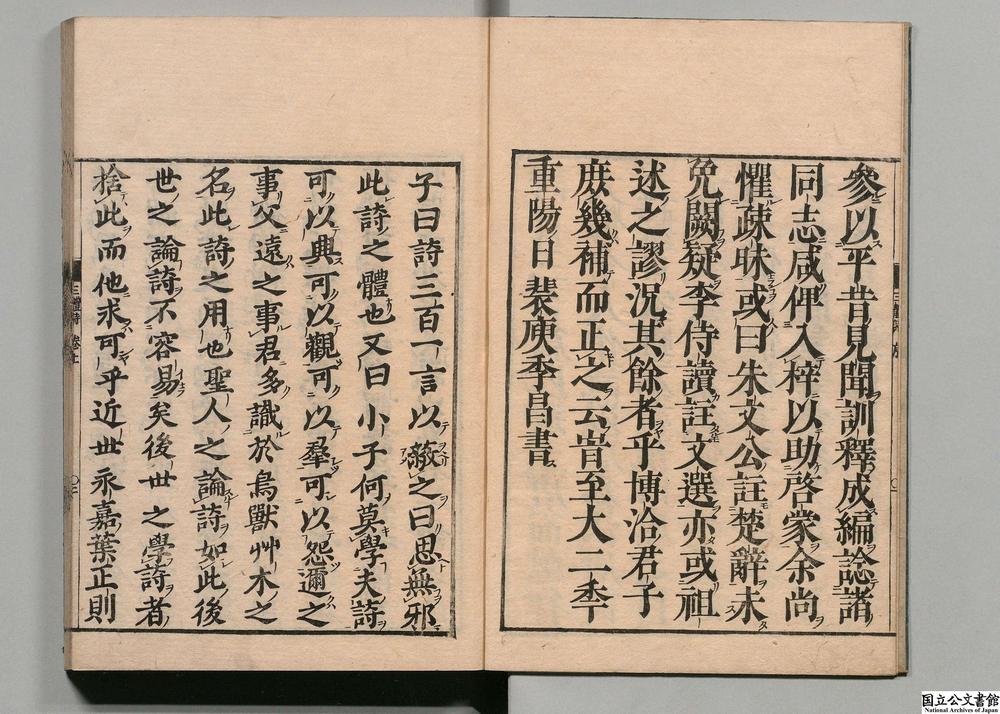 參以平昔見聞訓釋成編諗諸
同志咸俾入梓以助啓蒙余尚
懼疎昧或曰朱文公註楚辭未
免闕疑李侍讀註文選亦或祖
述之謬況其餘者乎博洽君子
庶幾補而正之云旹至大二秊
重陽日裴庾季昌書
子曰詩三百一言以蔽之曰思無邪
此詩之體也又曰小子何莫學夫詩
可以興可以觀可以羣可以怨邇之
事父遠之事君多識於鳥獸艸木之
名此詩之用也聖人之論詩如此後
世之論詩不容易矣後世之學詩者
捨此而他求可乎近世永嘉葉正則
国立公文書館
National Archives of Japan